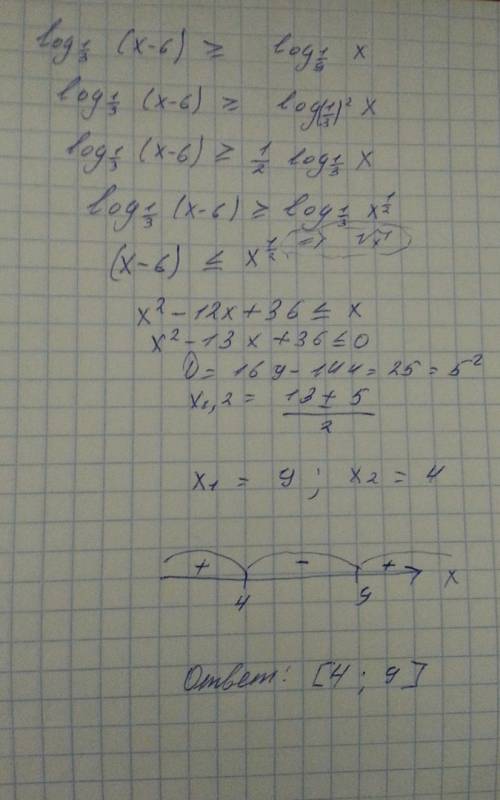 log_{1/3} (x-6) ≥ log_{1/9} x
log_{1/3} (x-6) ≥ log_{(1/3)^2} x
log_{1/3} (x-6) ≥ 1/2 log_{1/3} x
log_{1/3} (x-6) ≥ log_{1/3} x^{1/2}
(x-6) ≤ x^{1/2} => √x
x² - 12x + 36 ≤ x
x² - 13x + 36 ≤ 0
D = 169 - 144 = 25 = 5²
x₁,₂ = (13 ± 5)/2
x₁ = 9 ; x₂ = 4
+ - + x
4 9
Ответ: [4 ; 9]